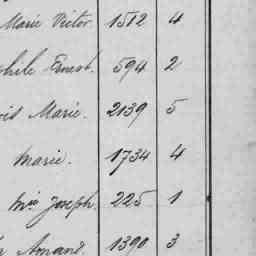 Marie Victor. 1512 4
phile Ernest. 594 2
ois Marie. 2139 5
Marie. 1734 4
Mie Joseph. 225 1
Amand. 1390 3